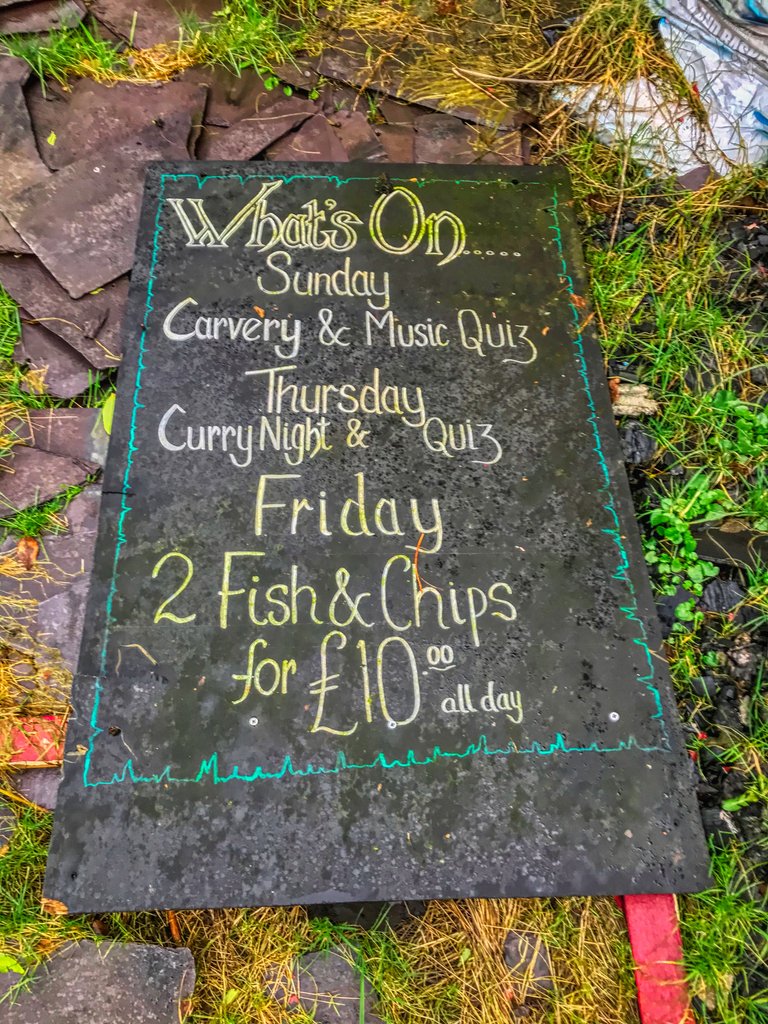 What's On.....
Sunday
Carvery & Music Quiz
Thursday
Curry Night & Quiz
Friday
2 Fish & Chips
for £10.00 all day